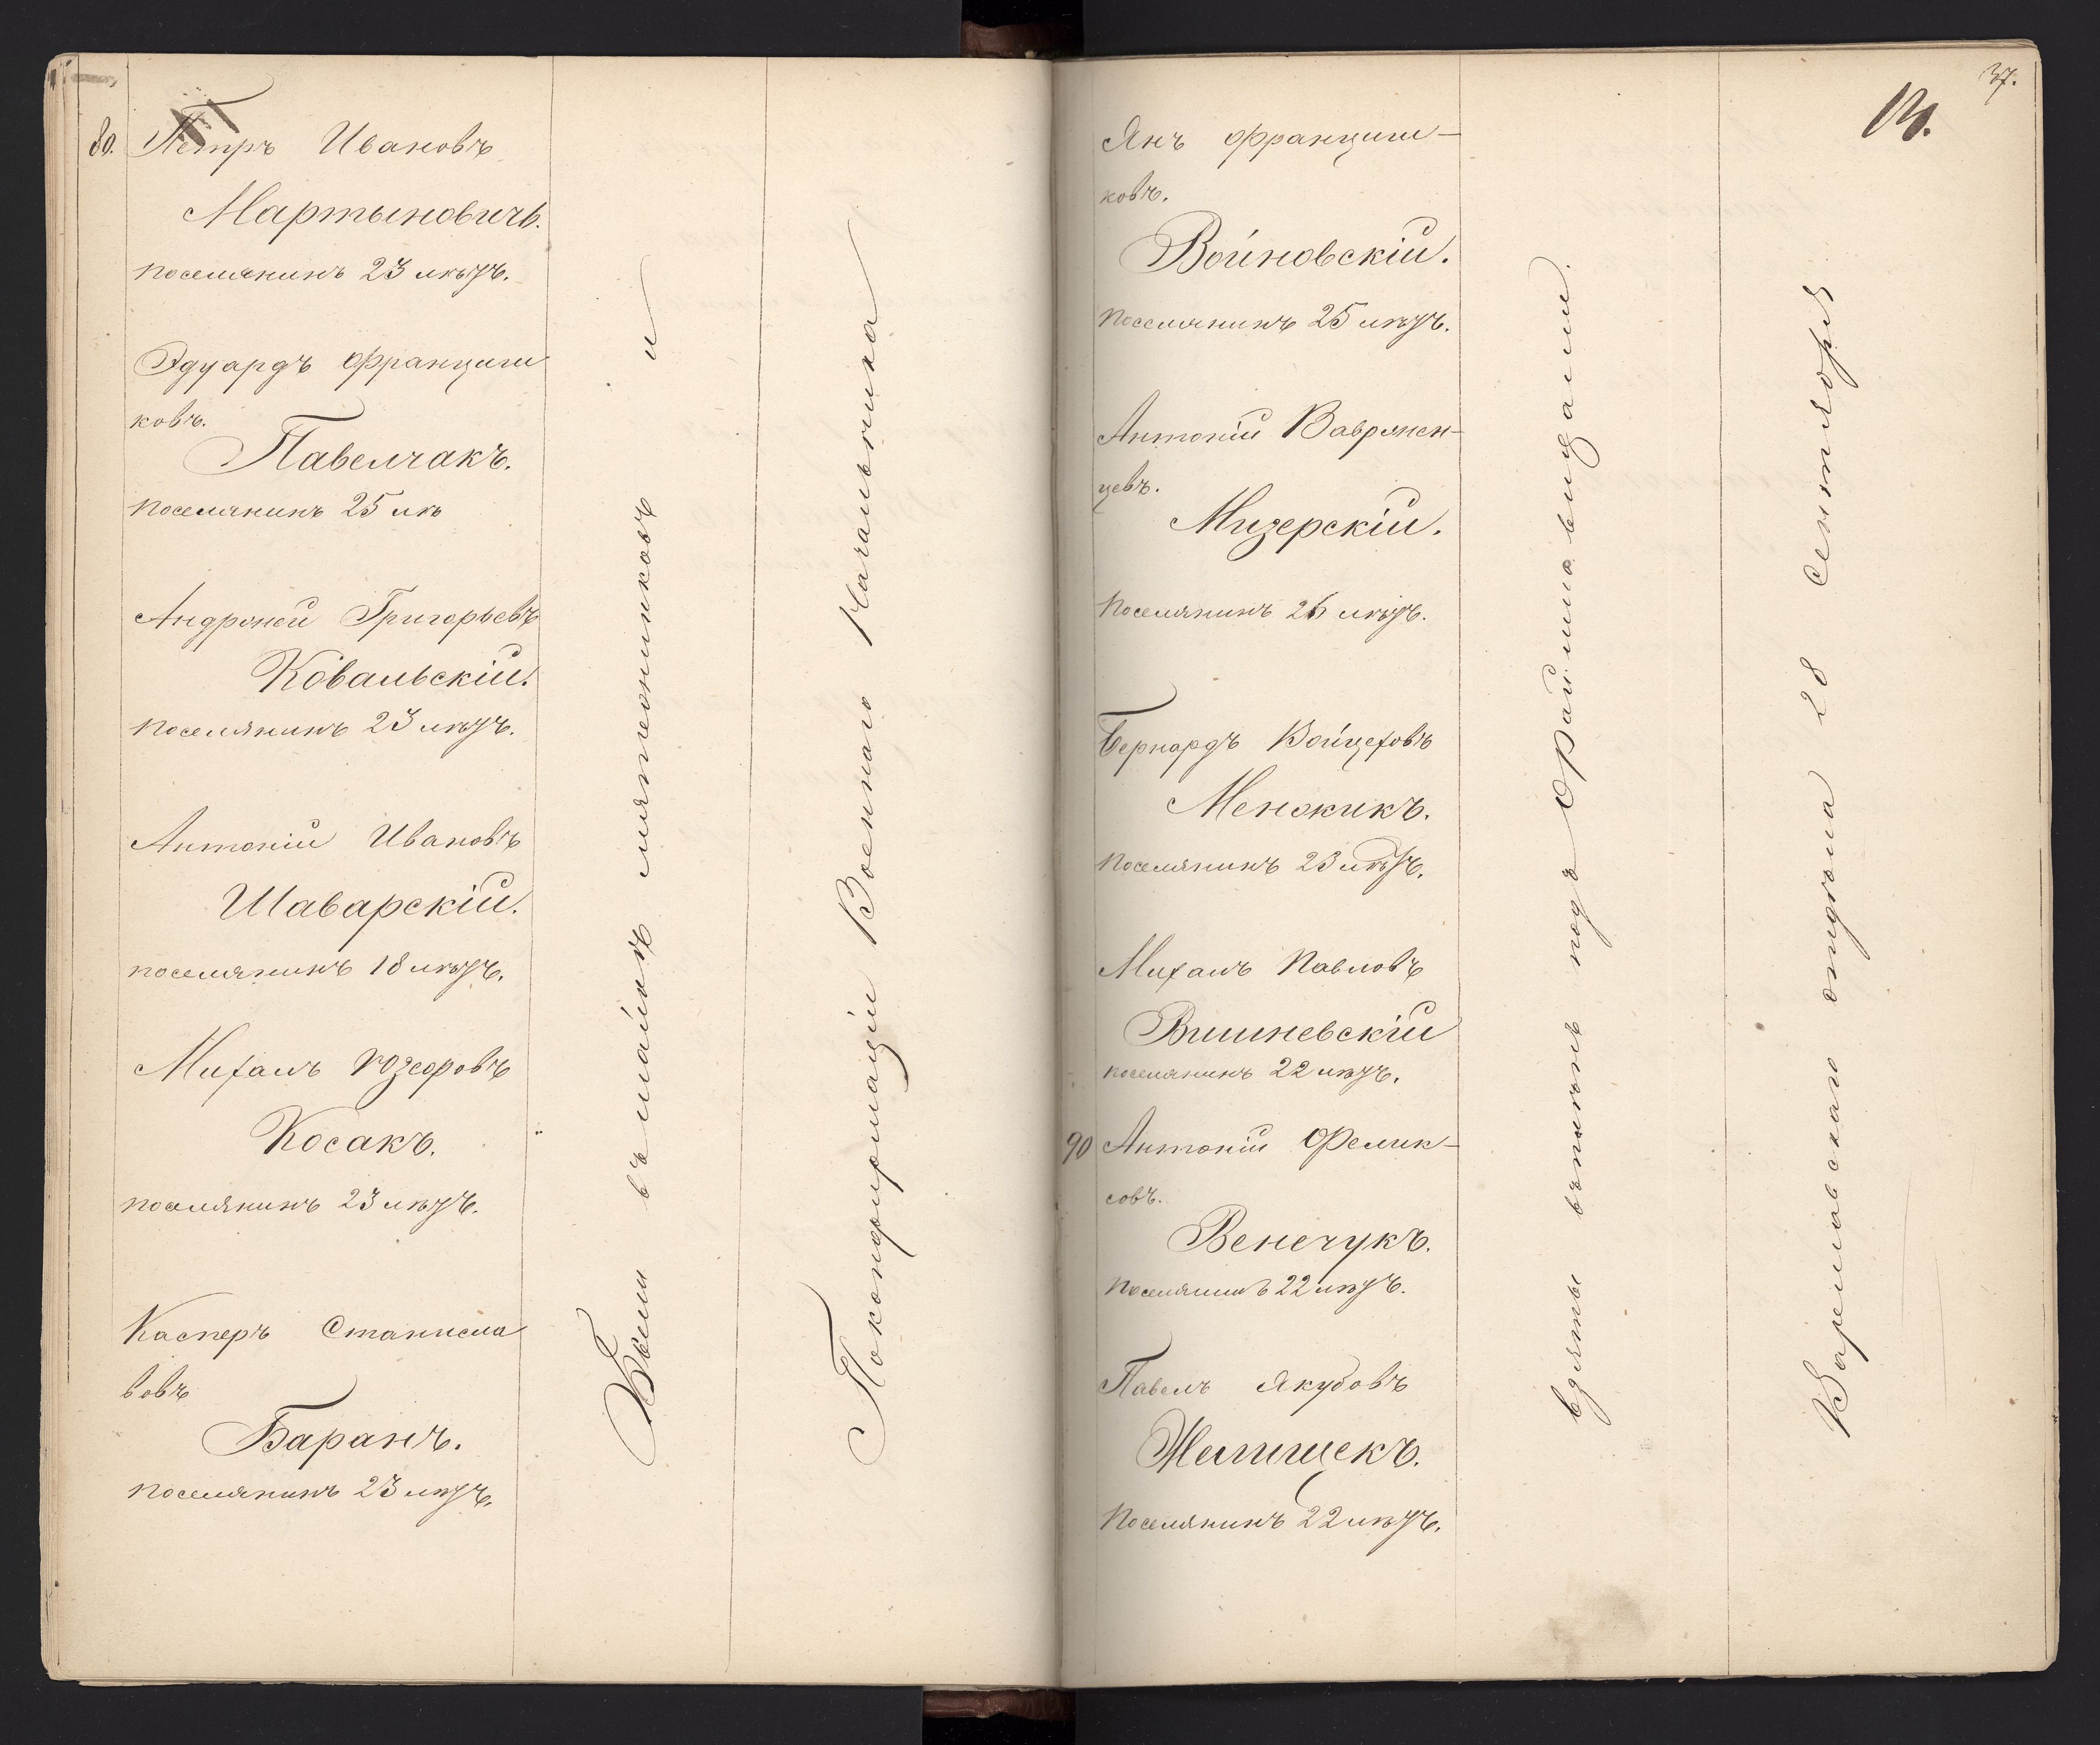 80. Петръ Ивановъ
Мартыновичъ.
поселянинъ 23 лѣтъ.
Эдуардъ Франциш
ковъ.
Павелчакъ.
поселянинъ 25 лѣ
Андржей Григорьевъ
Ковальскій.
поселянинъ 23 лѣтъ.
Антоній Ивановъ
Шаварскій.
поселянинъ 18 лѣтъ.
Михалъ Юзефовъ
Косакъ.
поселянинъ 23 лѣтъ.
Касперъ Станисла
вовъ
Баранъ.
поселянинъ 23 лѣтъ.
Были въ шайкѣ мятежниковъ и
По конфирмаціи Военнаго Начальника
37.
Янъ Францишковъ
ковъ.
Войновскій.
поселянинъ 25 лѣтъ.
Антоній Вавржен-
цевъ.
Мизерскій.
поселянинъ 26 лѣтъ.
Бернардъ Войцеховъ
Менжикъ.
поселянинъ 23 лѣтъ.
Михалъ Павловъ
Вишневскій
поселянинъ 22 лѣтъ.
90 Антоній Фелик-
совъ.
Венечукъ.
поселянинъ 22 лѣтъ.
Павелъ Якубовъ
поселянинъ 22 лѣтъ.
взяты въ плѣнъ подъ
Варшавскаго отдѣла 28 Сентября